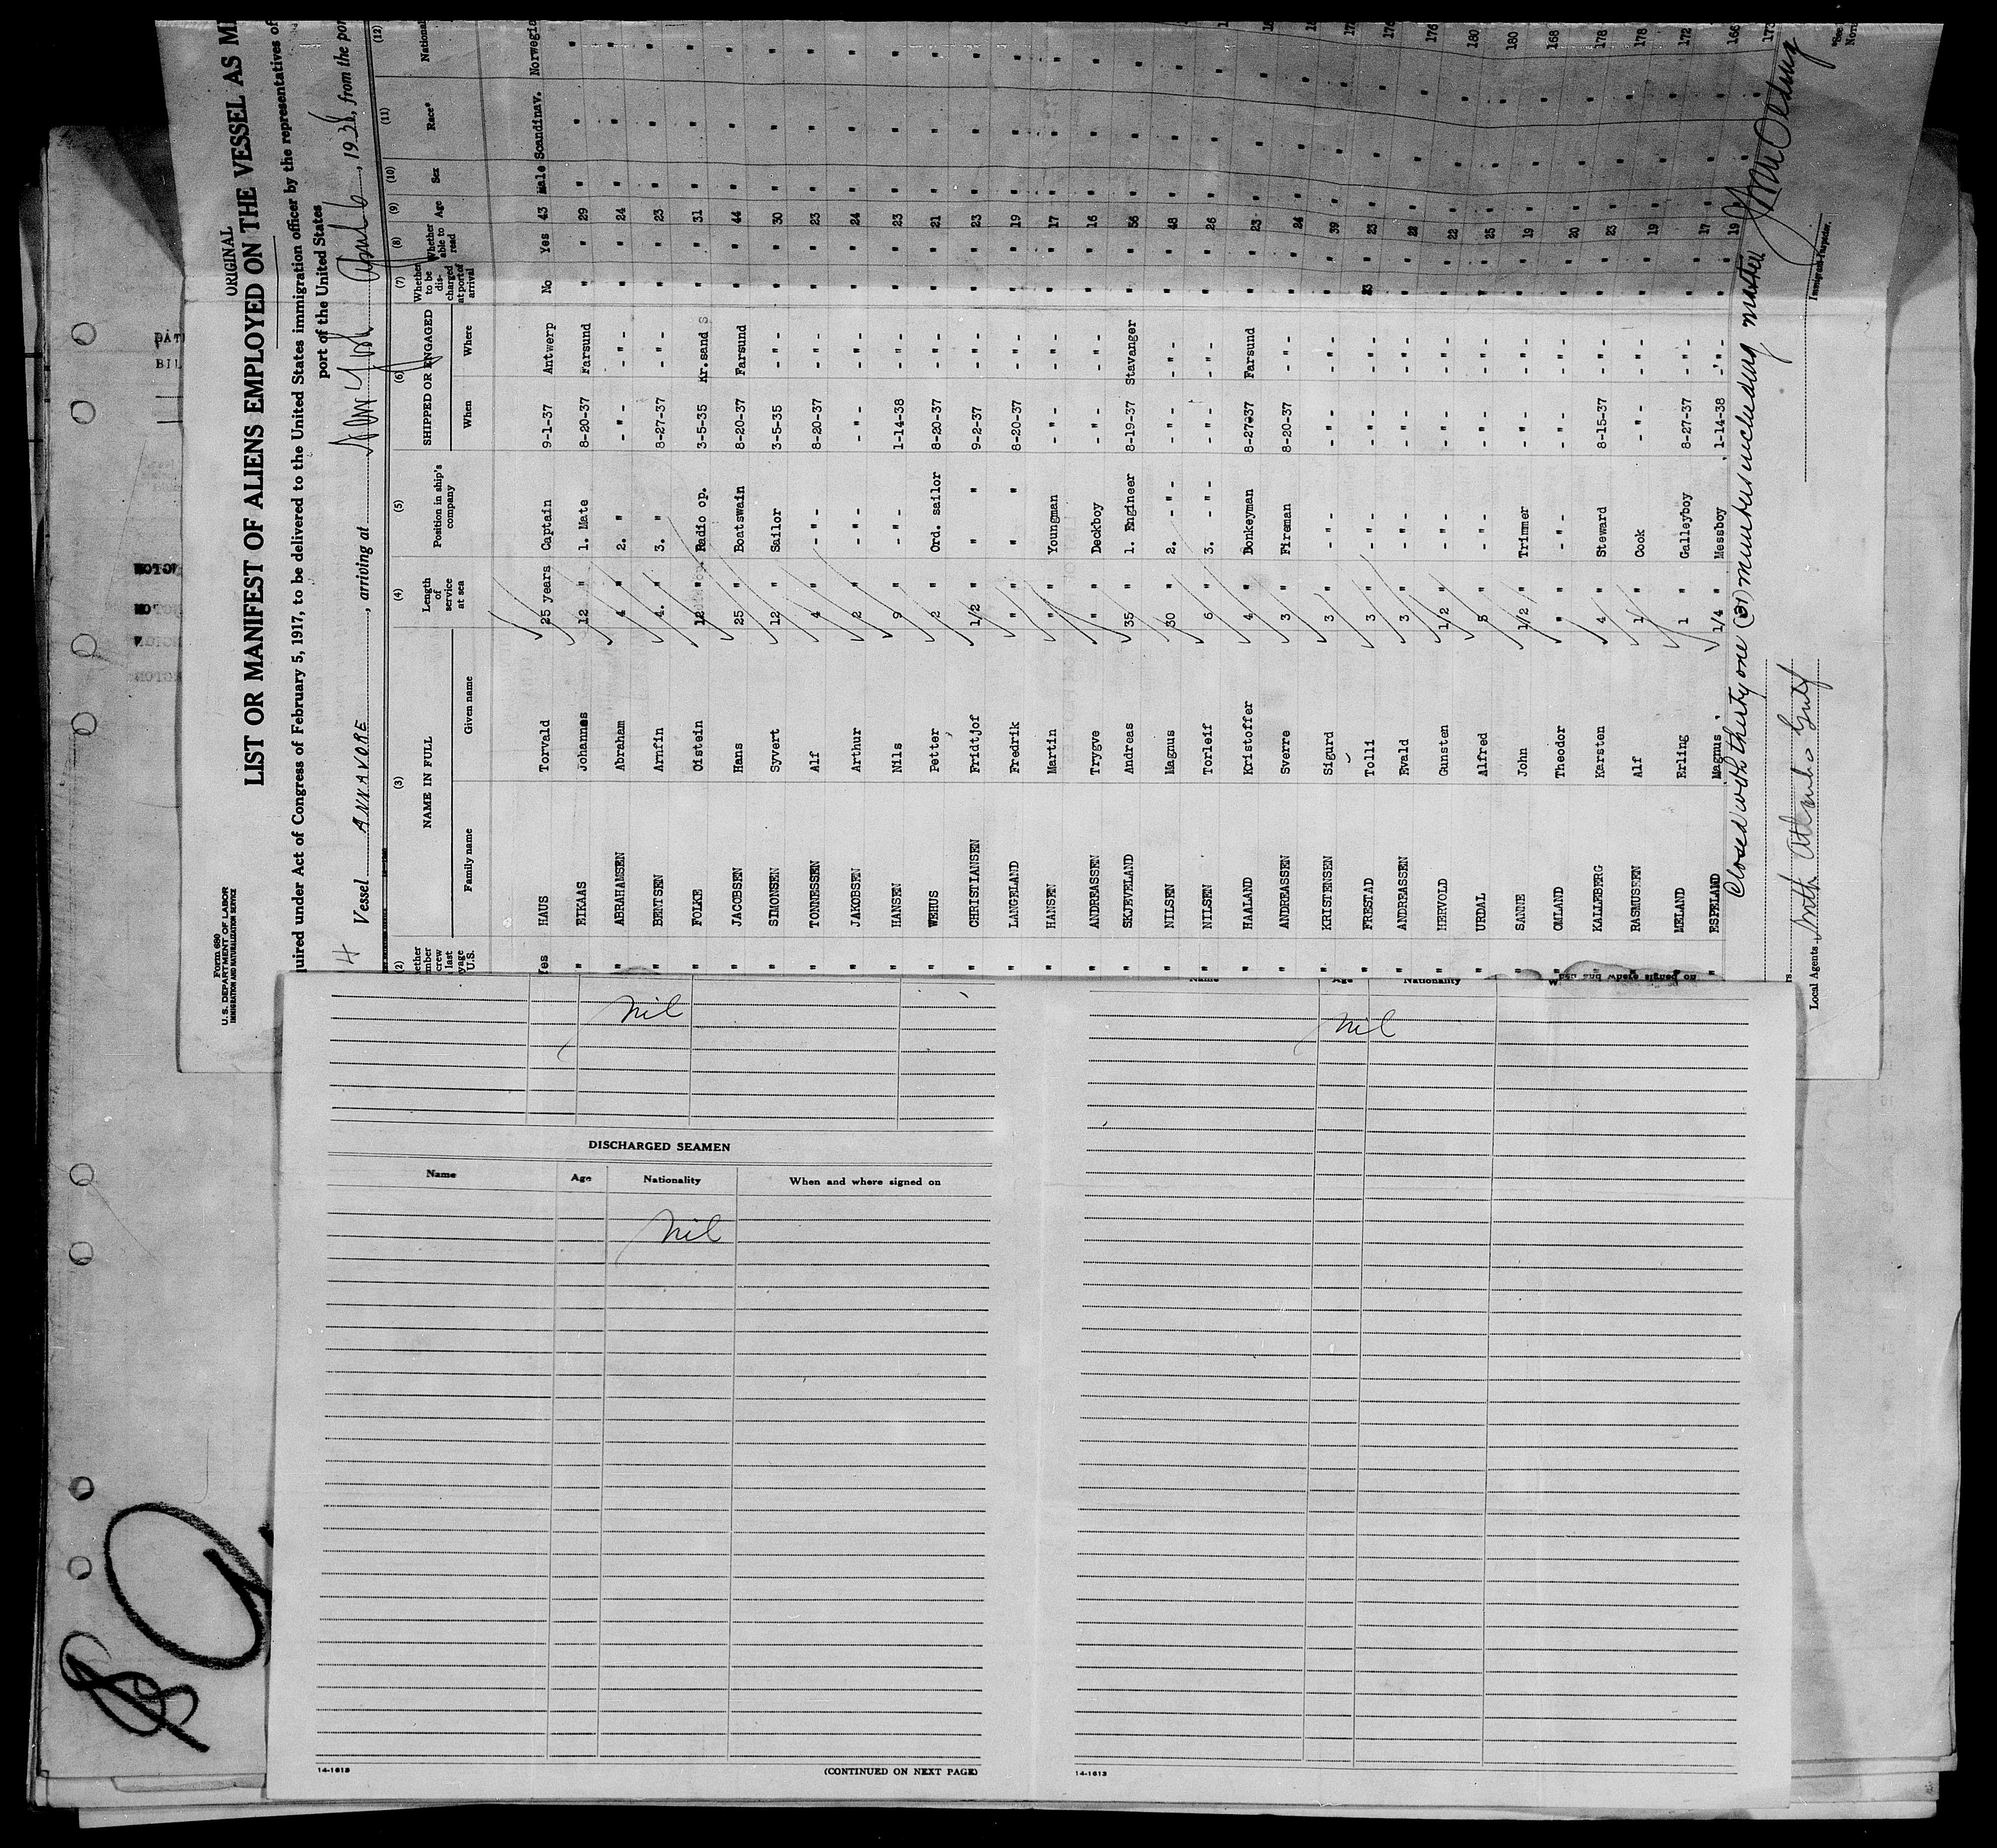 Form 680
U. S. DEPARTMENT OF LABOR
IMMIGRATION AND NATURALIZATION SERVICE
ORIGINAL
LIST OR MANIFEST OF ALIENS EMPLOYED ON THE VESSEL AS M
quired under Act of Congress of February 5, 1917, to be delivered to the United States immigration officer by the representatives of
port of the United States
4 Vessel ANNAVORE, arriving at New York April 6, 1938, from the por
(2) (3) (4) (5) (6) (7) (8) (9) (10) (11) (12)
ether mber crew last yage U.S. NAME IN FULL Length of service at sea Position in ship's company SHIPPED OR ENGAGED Whether to be discharged at port of arrival Whether able to read Age Sex Race* National
Family name Given name When Where
Yes HAUS Torvald 25 years Captain 9-1-37 Antwerp No Yes 43 Male Scandinav. Norwegia
" EIKAAS Johannes 12 " 1. Mate 8-20-37 Farsund " " 29 " " "
" ABRAHAMSEN Abraham 4 " 2. " - " - - " - " " 24 " " "
" BENTSEN Arnfin 4. " 3. " 8-27-37 - " - " " 23 " " "
" FOLKE Oistein 12 " Radio op. 3-5-35 Kr.sand s " " 31 " " "
" JACOBSEN Hans 25 " Boatswain 8-20-37 Farsund " " 44 " " "
" SIMONSEN Syvert 12 " Sailor 3-5-35 - " - " " 30 " " "
" TONNESSEN Alf 4 " - " - 8-20-37 - " - " " 23 " " "
" JAKOBSEN Arthur 2 " - " - - " - - " - " " 24 " " "
" HANSEN Nils 9 " - " - 1-14-38 - " - " " 23 " " "
" WEHUS Petter 2 " Ord. sailor 8-20-37 - " - " " 21 " " "
" CHRISTIANSEN Fridtjof 1/2 " " " 9-2-37 - " - " " 23 " " "
" LANGELAND Fredrik " " " " 8-20-37 - " - " " 19 " " "
" HANSEN Martin " " Youngman - " - - " - " " 17 " " "
" ANDREASSEN Trygve " " Deckboy - " - - " - " " 16 " " "
" SKJEVELAND Andreas 35 " 1. Engineer 8-19-37 Stavanger " " 56 " " "
" NILSEN Magnus 30 " 2. - " - - " - - " - " " 48 " " "
" NILSEN Torleif 6 " 3. - " - - " - - " - " " 26 " " "
" HAALAND Kristoffer 4 " Donkeyman 8-27-37 Farsund " " 23 " " "
" ANDREASSEN Sverre 3 " Fireman 8-20-37 - " - " " 24 " " "
" KRISTENSEN Sigurd 3 " - " - - " - - " - " " 39 " " "
" FRESTAD Tolli 3 " - " - - " - - " - 23 " 23 " " "
" ANDREASSEN Evald 3 " - " - - " - - " - " " 22 " " "
" HERVOLD Gunsten 1/2 " - " - - " - - " - " " 22 " " "
" URDAL Alfred 5 " - " - - " - - " - " " 25 " " "
" SANNE John 1/2 " Trimmer - " - - " - " " 19 " " "
" OMLAND Theodor " " - " - - " - - " - " " 20 " " "
" KALLEBERG Karsten 4 " Steward 8-15-37 - " - " " 23 " " "
" RASMUSSEN Alf 1 " Cook - " - - " - " " 19 " " "
" MELAND Erling 1 " Galleyboy 8-27-37 - " - " " 17 " " "
" ESPELAND Magnus 1/4 " Messboy 1-14-38 - " - " " 19 " " "
176
180
180
168
178
178
172
166
173
Closed with thirty one (31) members including master
Immigrant Inspector.
Local Agents North Atlantic & Gulf
nil
DISCHARGED SEAMEN
Name Age Nationality When and where signed on
nil
14-1613 (CONTINUED ON NEXT PAGE)
Name Age Nationality W
nil
14-1613